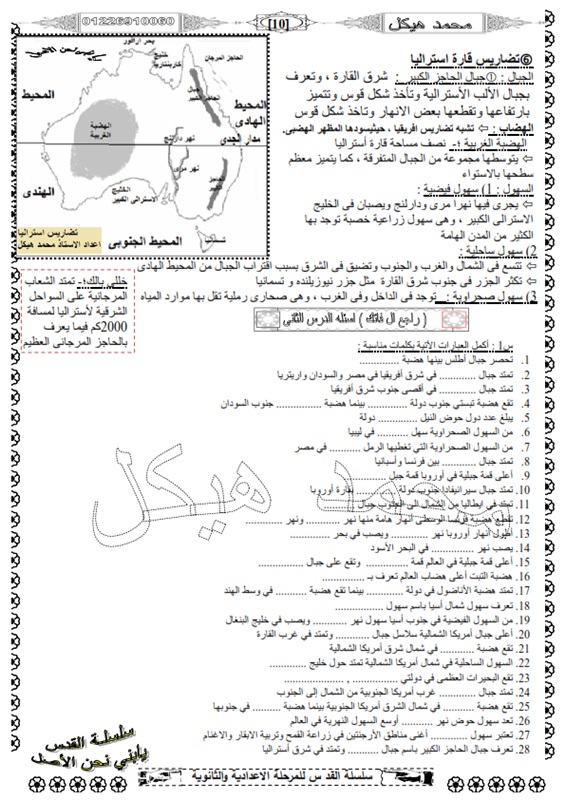 محمد هيكل
[10]
01226910060
⑥تضاريس قارة استراليا
الجبال : ①جبال الحاجز الكبير : شرق القارة ، وتعرف
بجبال الألب الأسترالية وتأخذ شكل قوس وتتميز
بارتفاعها وتقطعها بعض الانهار وتأخذ شكل قوس
الهضاب : ⇐ تشبه تضاريس افريقيا ، حيثيسودها المظهر الهضبى.
الهضبة الغربية :- نصف مساحة قارة استراليا
⇐ يتوسطها مجموعة من الجبال المتفرقة ، كما يتميز معظم
سطحها بالاستواء
السهول : 1) سهول فيضية :
⇐ يجرى فيها نهرا مرى ودارلنج ويصبان فى الخليج
الاسترالى الكبير ، وهى سهول زراعية خصبة توجد بها
الكثير من المدن الهامة
2) سهول ساحلية :
⇐ تتسع فى الشمال والغرب والجنوب وتضيق فى الشرق بسبب اقتراب الجبال من المحيط الهادى
⇐ تكثر الجزر فى جنوب شرق القارة مثل جزر نيوزيلنده و تسمانيا
3) سهول صحراوية : توجد فى الداخل وفى الغرب ، وهى صحارى رملية تقل بها موارد المياه
بحر ارافور
الحاجز المرجان
خليج
كاربنتاريا
جبال
الحاجز
الكبير
المحيط
الهادى
مدار الجدى
المحيط
الهضبة
الغربية
نهر دارلنج
نهر مرى
الحاجز
الكبير
الهندى
الخليج
الاسترالى الكبير
تضاريس استراليا
اعداد الاستاذ محمد هيكل
المحيط الجنوبى
خللى بالك:- تمتد الشعاب
المرجانية على السواحل
الشرقية لأستراليا لمسافة
2000كم فيما يعرف
بالحاجز المرجانى العظيم
( راجع ال فاتك ) اسئله الدرس الثانى
س1 : أكمل العبارات الآتية بكلمات مناسبة :
1. تحصر جبال أطلس بينها هضبة ..............
2. تمتد جبال ............. في شرق أفريقيا في مصر والسودان واريتريا
3. تمتد جبال ............. في أقصى جنوب شرق أفريقيا
4. تقع هضبة تبستي جنوب دولة .............. بينما هضبة .............. جنوب السودان
5. يبلغ عدد دول حوض النيل .............. دولة
6. من السهول الصحراوية سهل .............. في ليبيا
7. من السهول الصحراوية التي تغطيها الرمل ............ في مصر
8. تمتد جبال ............ بين فرنسا وأسبانيا
9. أعلى قمة جبلية في أوروبا قمة جبل ............
10. تمتد جبال سيرانيفادا جنوب دولة ............ بقارة أوروبا
11. تمتد في ايطاليا من الشمال الى الجنوب جبال ............
12. تقطع هضبة فرنسا الوسطى انهار هامة منها نهر ............ ونهر ............
13. أطول أنهار أوروبا نهر ............ ويصب في بحر ............
14. يصب نهر ............ في البحر الأسود
15. أعلى قمة جبلية في العالم قمة ............ وتقع على جبال ............
16. هضبة التبت أعلى هضاب العالم تعرف بـ ............
17. تمتد هضبة الأناضول في دولة ............ بينما تقع هضبة ............ في وسط الهند
18. تعرف سهول شمال آسيا باسم سهول ............
19. من السهول الفيضية في جنوب أسيا سهول نهر ............ ويصب في خليج البنغال
20. أعلى جبال أمريكا الشمالية سلاسل جبال ............ وتمتد في غرب القارة
21. تقع هضبة ............ في شمال شرق أمريكا الشمالية
22. السهول الساحلية في شمال أمريكا الشمالية تمتد حول خليج ............
23. تقع البحيرات العظمى في دولتي ............ , ............
24. تمتد جبال ............ غرب أمريكا الجنوبية من الشمال إلى الجنوب
25. تقع هضبة ............ في شمال الشرق أمريكا الجنوبية بينما هضبة ............ في جنوبها
26. تعد سهول حوض نهر ............ أوسع السهول النهرية في العالم
27. تعتبر سهول ............ أغنى مناطق الأرجنتين في زراعة القمح وتربية الابقار والاغنام
28. تعرف جبال الحاجز الكبير باسم جبال ............ وتمتد في شرق أستراليا
محمد هيكل
سلسلة القدس
يابني نحن الأصل
سلسلة القدس للمرحلة الاعدادية والثانوية